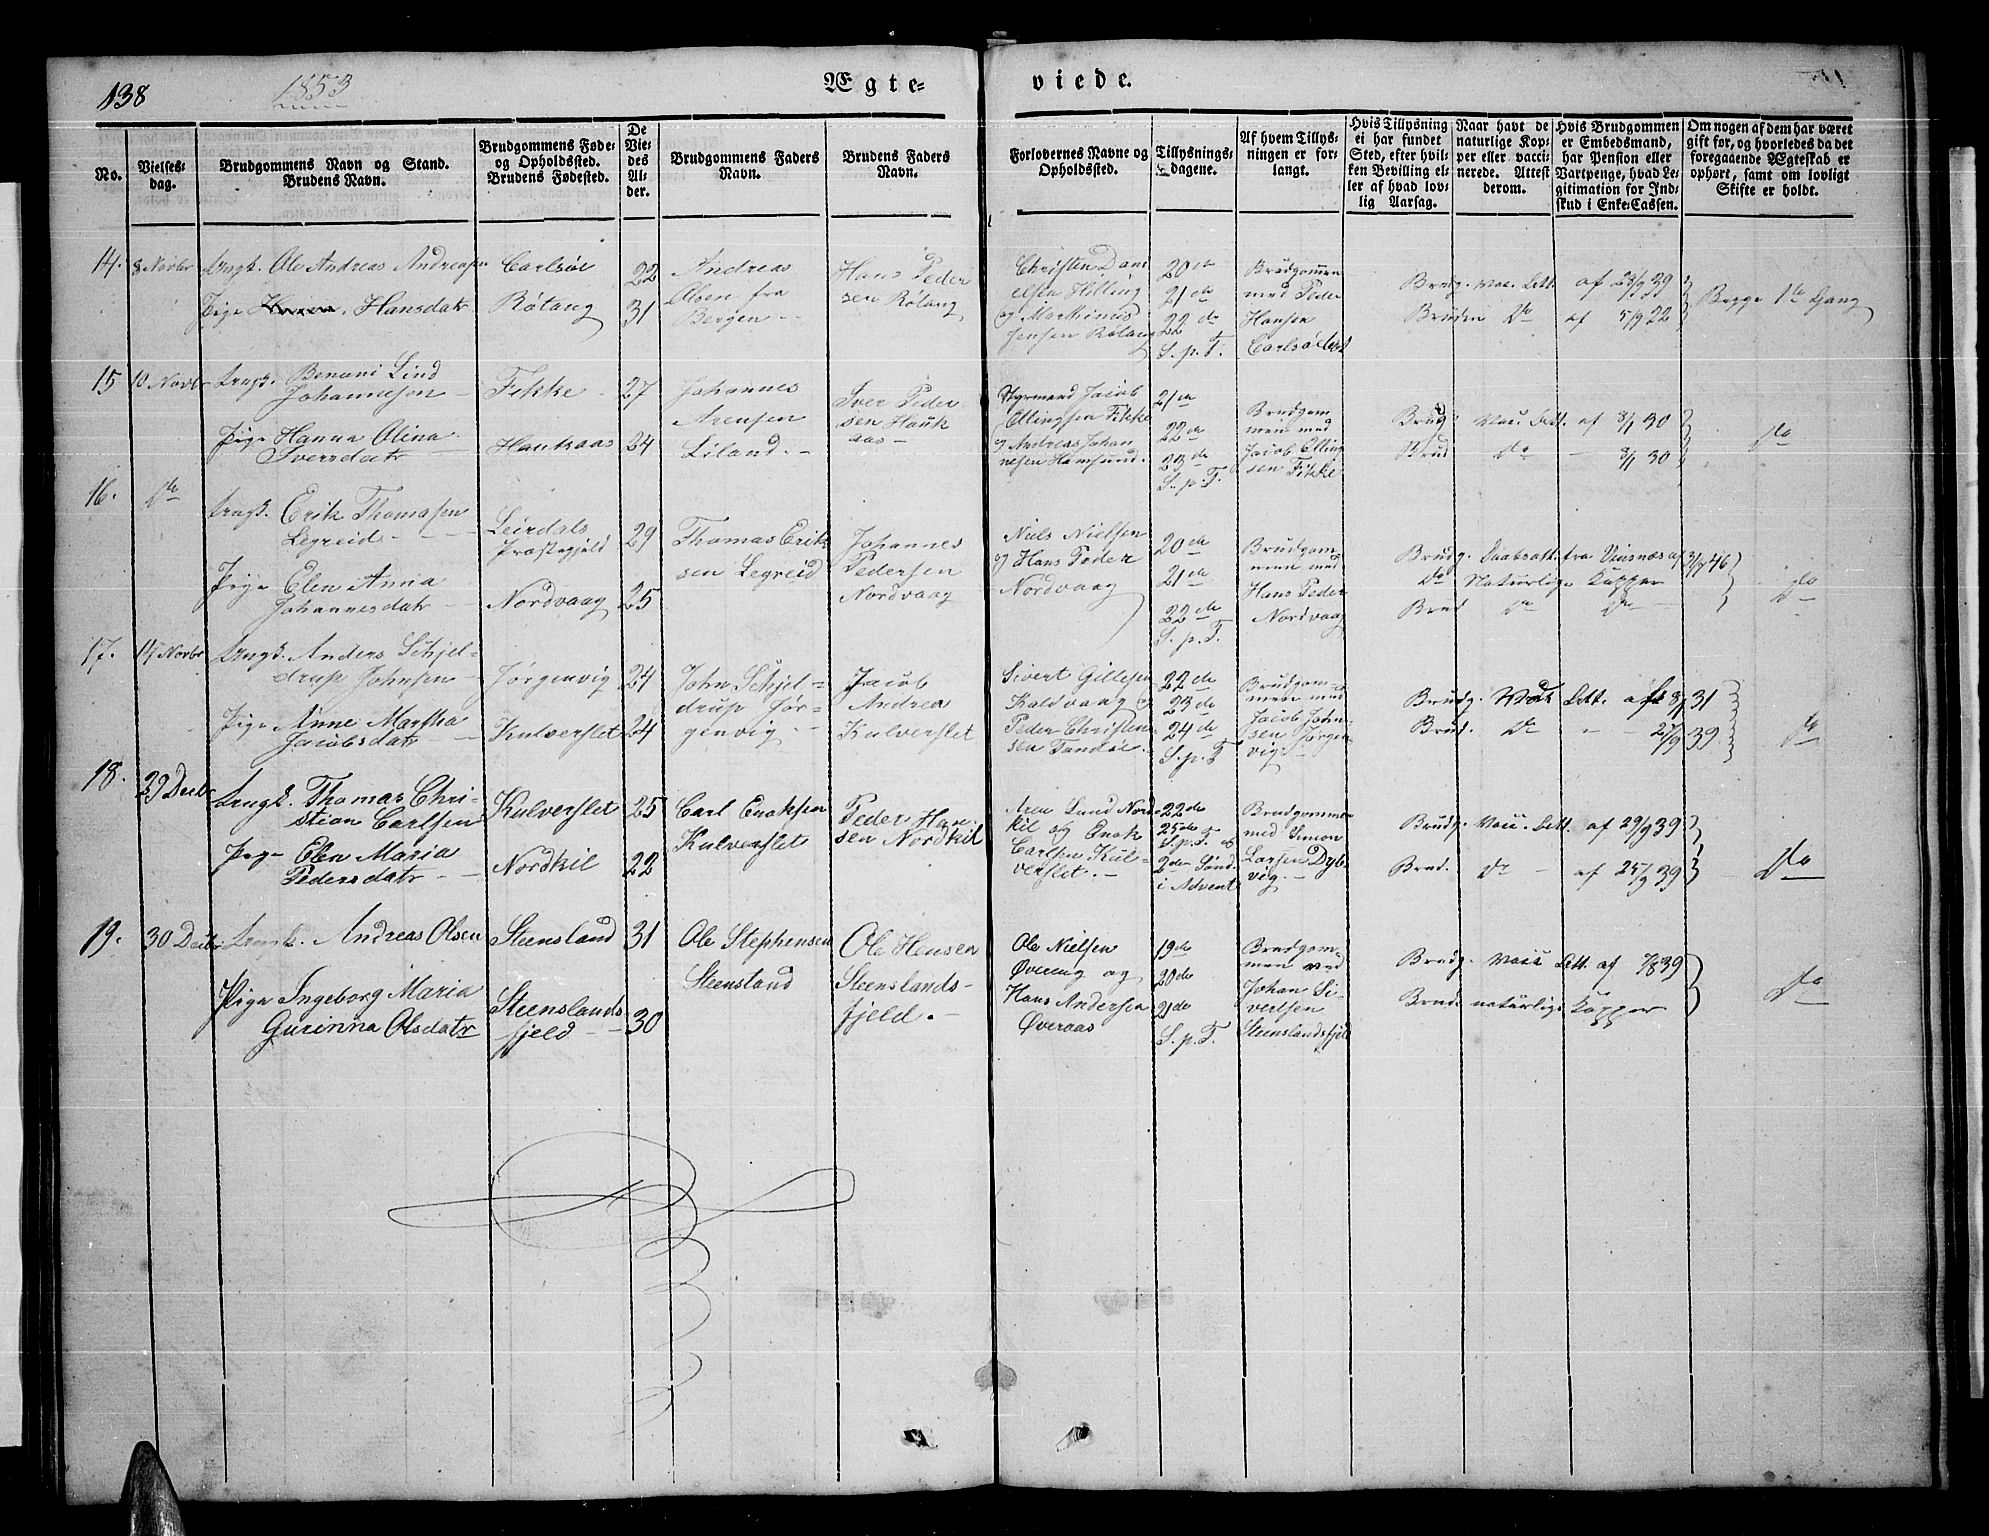 138
1853
Ægte-
viede.
No.
Vielses-
dag.
Brudgommens Navn og Stand.
Brudens Navn.
Brudgommens Føde-
og Opholdssted.
Brudens Fødested.
De
Vie-
des
Al-
der.
Brudgommens Faders
Navn.
Brudens Faders
Navn.
Forlovernes Navne og
Opholdssted.
Tillysnings-
dagene.
Af hvem Tillys-
ningen er for-
langt.
Hvis Tillysning
ei har fundet
Sted, efter hvil-
ken Bevilling el-
ler af hvad lov-
lig Aarsag.
Naar havt de
naturlige Kop-
per eller vacci-
nerede. Attest
derom.
Hvis Brudgommen
er Embedsmand,
har Pension eller
Vartpenge, hvad Le-
gitimation for Ind-
skud i Enke-Cassen.
Om nogen af dem har været
gift før, og hvorledes da det
foregaaende Ægteskab er
ophørt, samt om lovligt
Skifte er holdt.
14.
8 Novbr
Ungk. Ole Andreas Andreasen
Pige Hansdatr
Carlsöe
Rötang
22
31
Andreas
Olsen fra
Bergen
Hans Peder
sen Rötang
Christen Dani
elsen Hilling
og Martinus
Jensen Rötang
20de
21de
22de
S. p. T.
Brudgommen
med Peder
Hansen
Carlsöe
Brudg. Vac. Att. af 23/9 39
Bruden Do af 5/9 22
Begge 1ste Gang
15
10 Novbr
Ungk. Benoni Lind
Johannesen
Pige Hanna Olina
Iversdatr
Fikke
Haukaas
27
24
Johannes
Arensen
Liland.
Iver Peder
sen Hauk
aas
Styrmand Jacob
Ellingsen Fikke
og Andreas Johan
nesen Hamsund.
21de
22de
23de
S. p. T.
Brudgom
men med
Jacob Elling
sen Fikke
Brudg. Vac. Att. af 8/1 30
Brud Do 8/1 30
Do
16.
Do
Ungk. Erik Thomasen
Legreid
Pige Elen Anna
Johannesdatr
Leirdals
Præstegjeld
Nordvaag
29
25
Thomas Erik
sen Legreid
Johannes
Pedersen
Nordvaag
Niels Nielsen
og Hans Peder
Nordvaag
20de
21de
22de
S. p. T.
Brudgom-
men med
Hans Peder
Nordvaag
Brudg. Daabsatt. fra 46
Do Naturlige Kopper
Brud Do Do
Do
17.
14 Novbr
Ungk. Anders Schjel-
drup Johnsen
Pige Anne Martha
Jacobsdatr
Jørgenvig
Kulverslet
24
24
John Schjel-
drup Jör-
genvig
Jacob
Andrea
Kulverslet
Sivert Gillesen
Kaldvaag og
Peder Christen
sen Tandöe
22de
23de
24de
S. p. T
Brudgom-
men med
Jacob John-
sen Jörgen
vig.
Brudg. Att. 31
Brud. Do 27/9 39
Do
18.
29 Decbr
Ungk. Thomas Chri-
stian Carlsen
Pige Elen Maria
Pedersdatr
Kulverslet
Nordkil
25
22
Carl Enoksen
Kulverslet
Peder Han
sen Nordkil
Aren Lund Nord
kil og Enok
Carlsen Kul-
verslet.
22de
25de
S. p. T. og
2den Sönd
i Advent
Brudgommen
med Simon
Larsen Dyb
vig.
Brudg. Vacc. Att. af 29/9 39
Brud. Do af 25/9 39
Do
19.
30 Decbr
Ungk. Andreas Olsen
Pige Ingeborg Maria
Gurinna Olsdatr
Steensland
Steenslands
fjeld
31
30
Ole Stephensen
Steensland
Ole Hansen
Steenslands-
fjeld.
Ole Nielsen
Övereng og
Hans Andersen
Øveraas
19de
20de
21de
S. p. T.
Brudgom-
men ved
Johan Si-
vertsen
Steenslandsfjeld
Brudg. Vacc Att. af 7/8 39
Brud. naturlige Kopper
Do